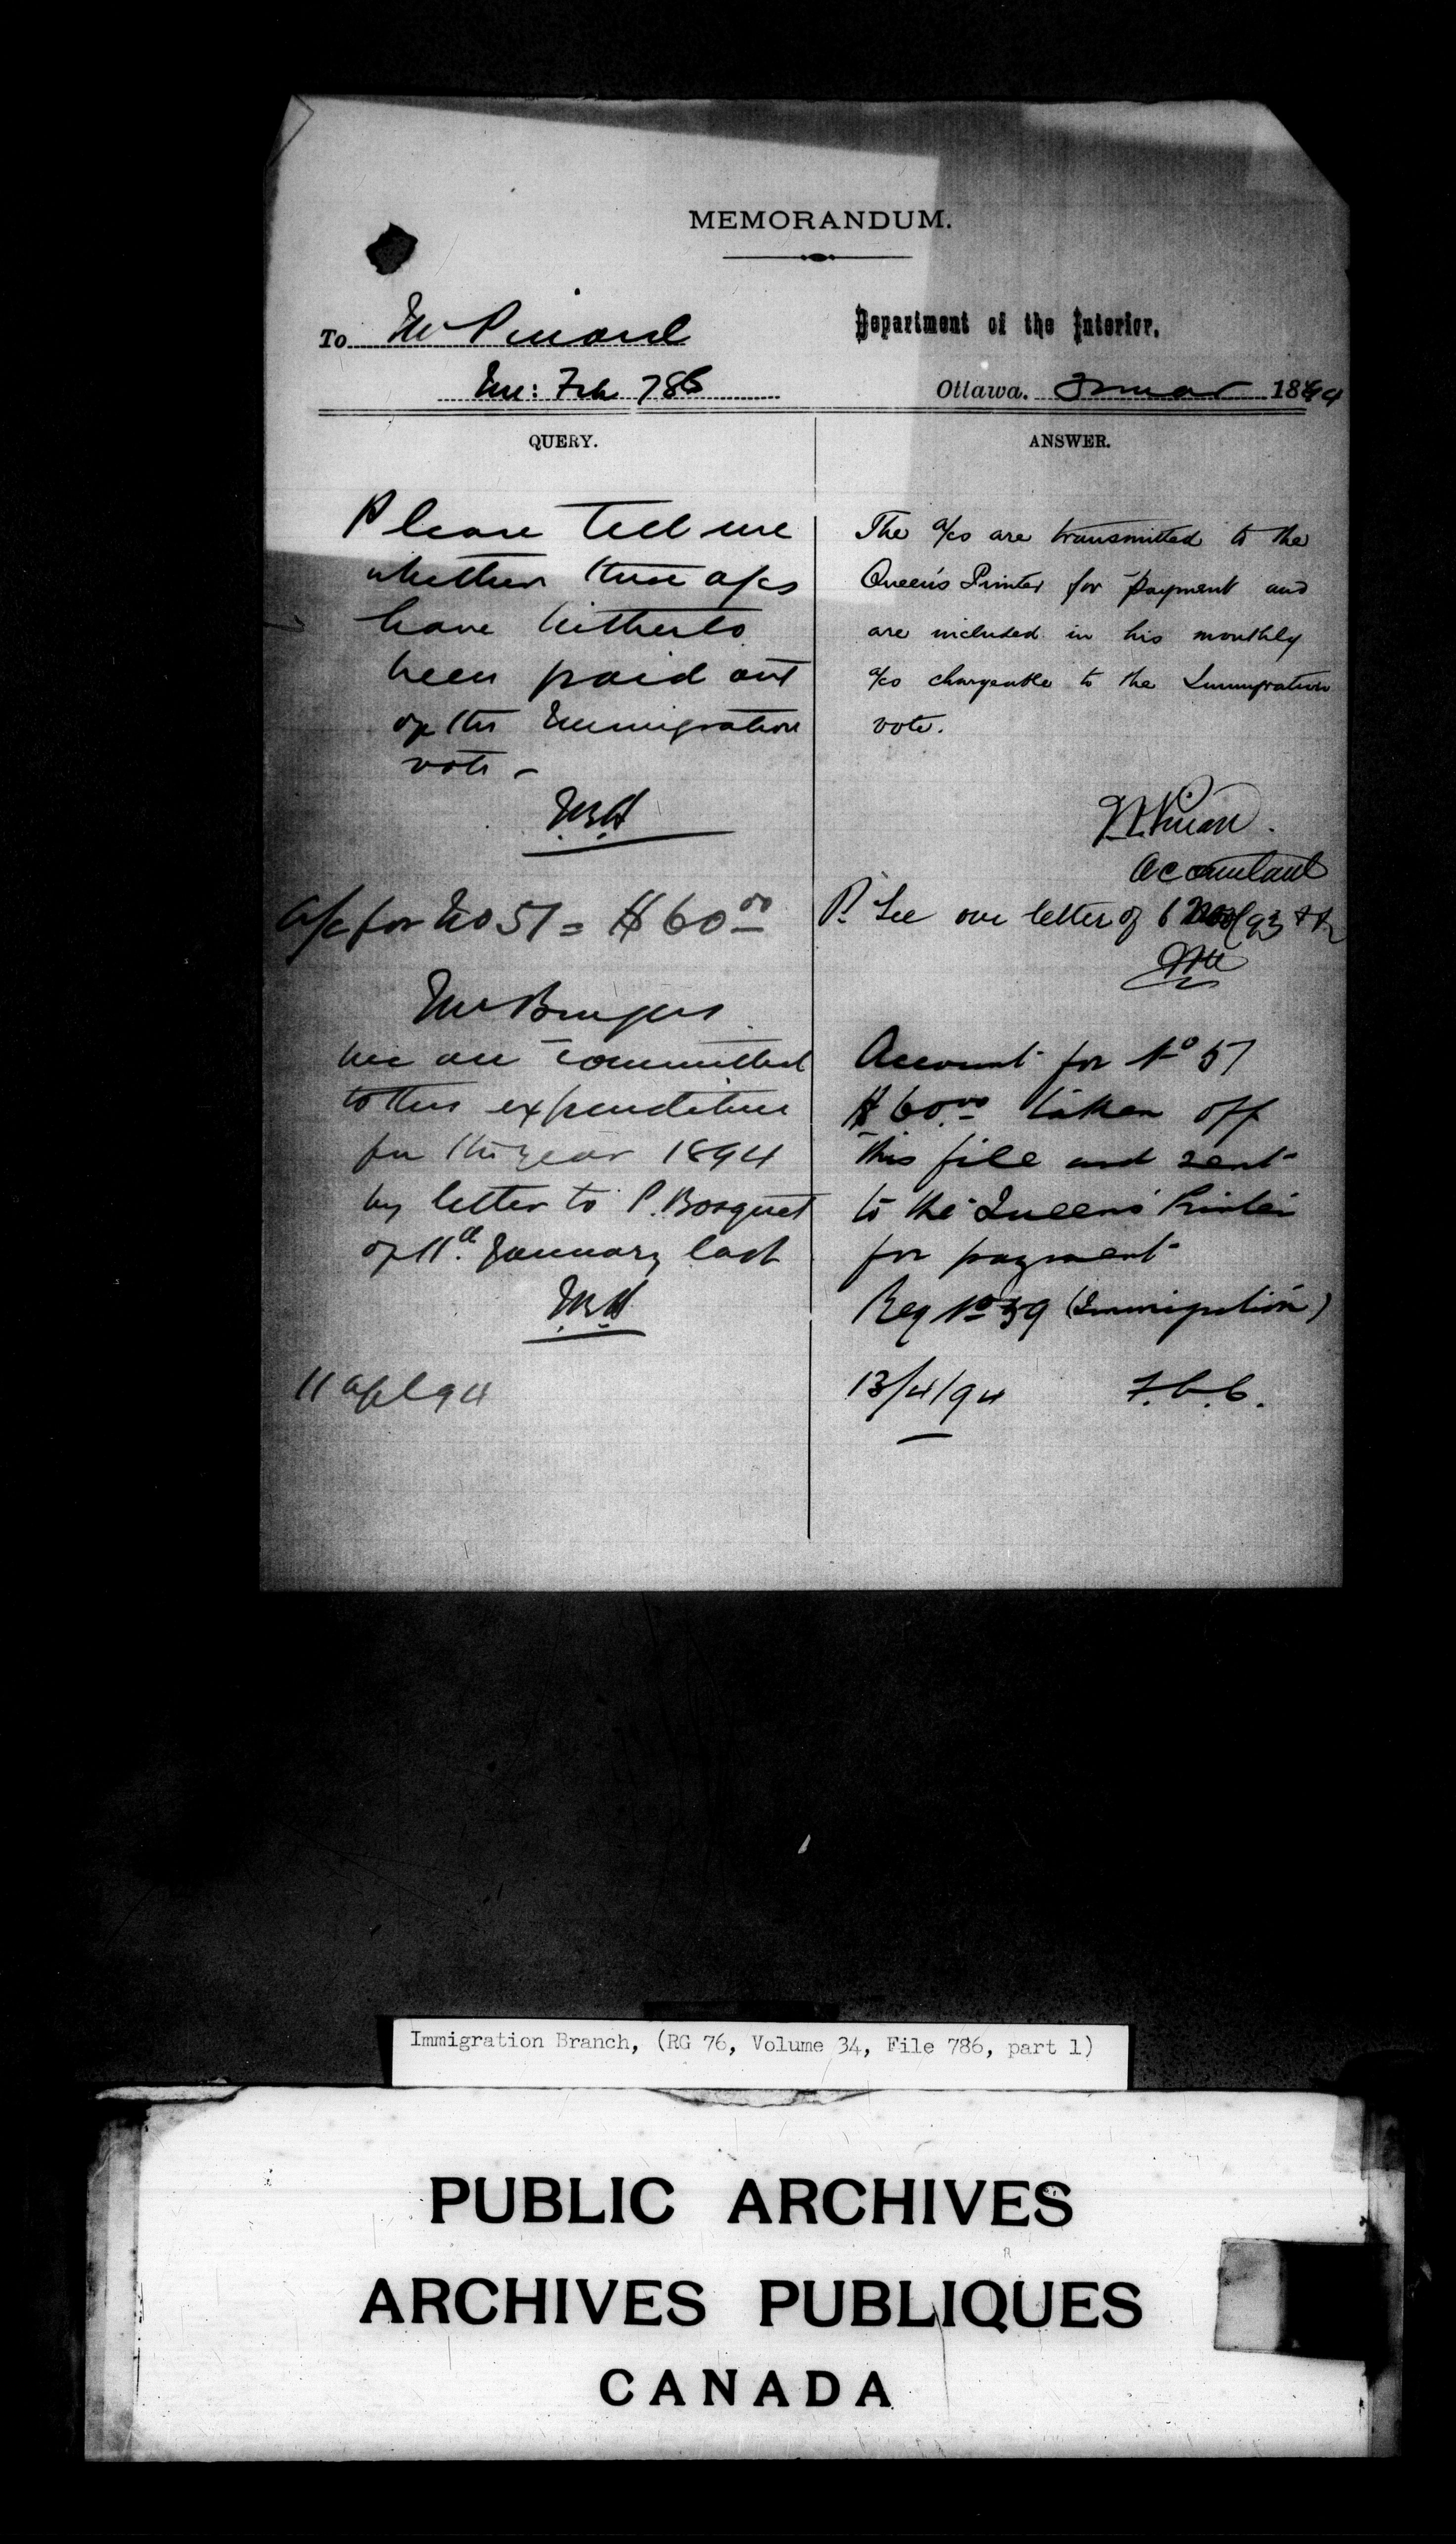 MEMORANDUM.
To Mr Pinard
Imm: File 786
Department of the Interior.
Ottawa, 3 mar 1894
QUERY.
Please tell me
whether these a/cs
have hitherto
been paid out
of the Immigration
vote -
a/c for No 57 = $60.00
Mr Burgess
We are committed
to this expenditure
for the year 1894
by letter to P. Bosquet
of 11th January last
11 apl 94
ANSWER.
The a/cs are transmitted to the
Queen's Printer for payment and
are included in his monthly
a/cs chargeable to the Immigration
vote.
Pinard.
Accountant
See our letter of 6 93
Account for No 57
$60.00 taken off
this file and sent
to the Queen's Printer
for payment
Req No 39 (Immigration)
13/4/94
Immigration Branch, (RG 76, Volume 34, File 786, part 1)
PUBLIC ARCHIVES
ARCHIVES PUBLIQUES
CANADA